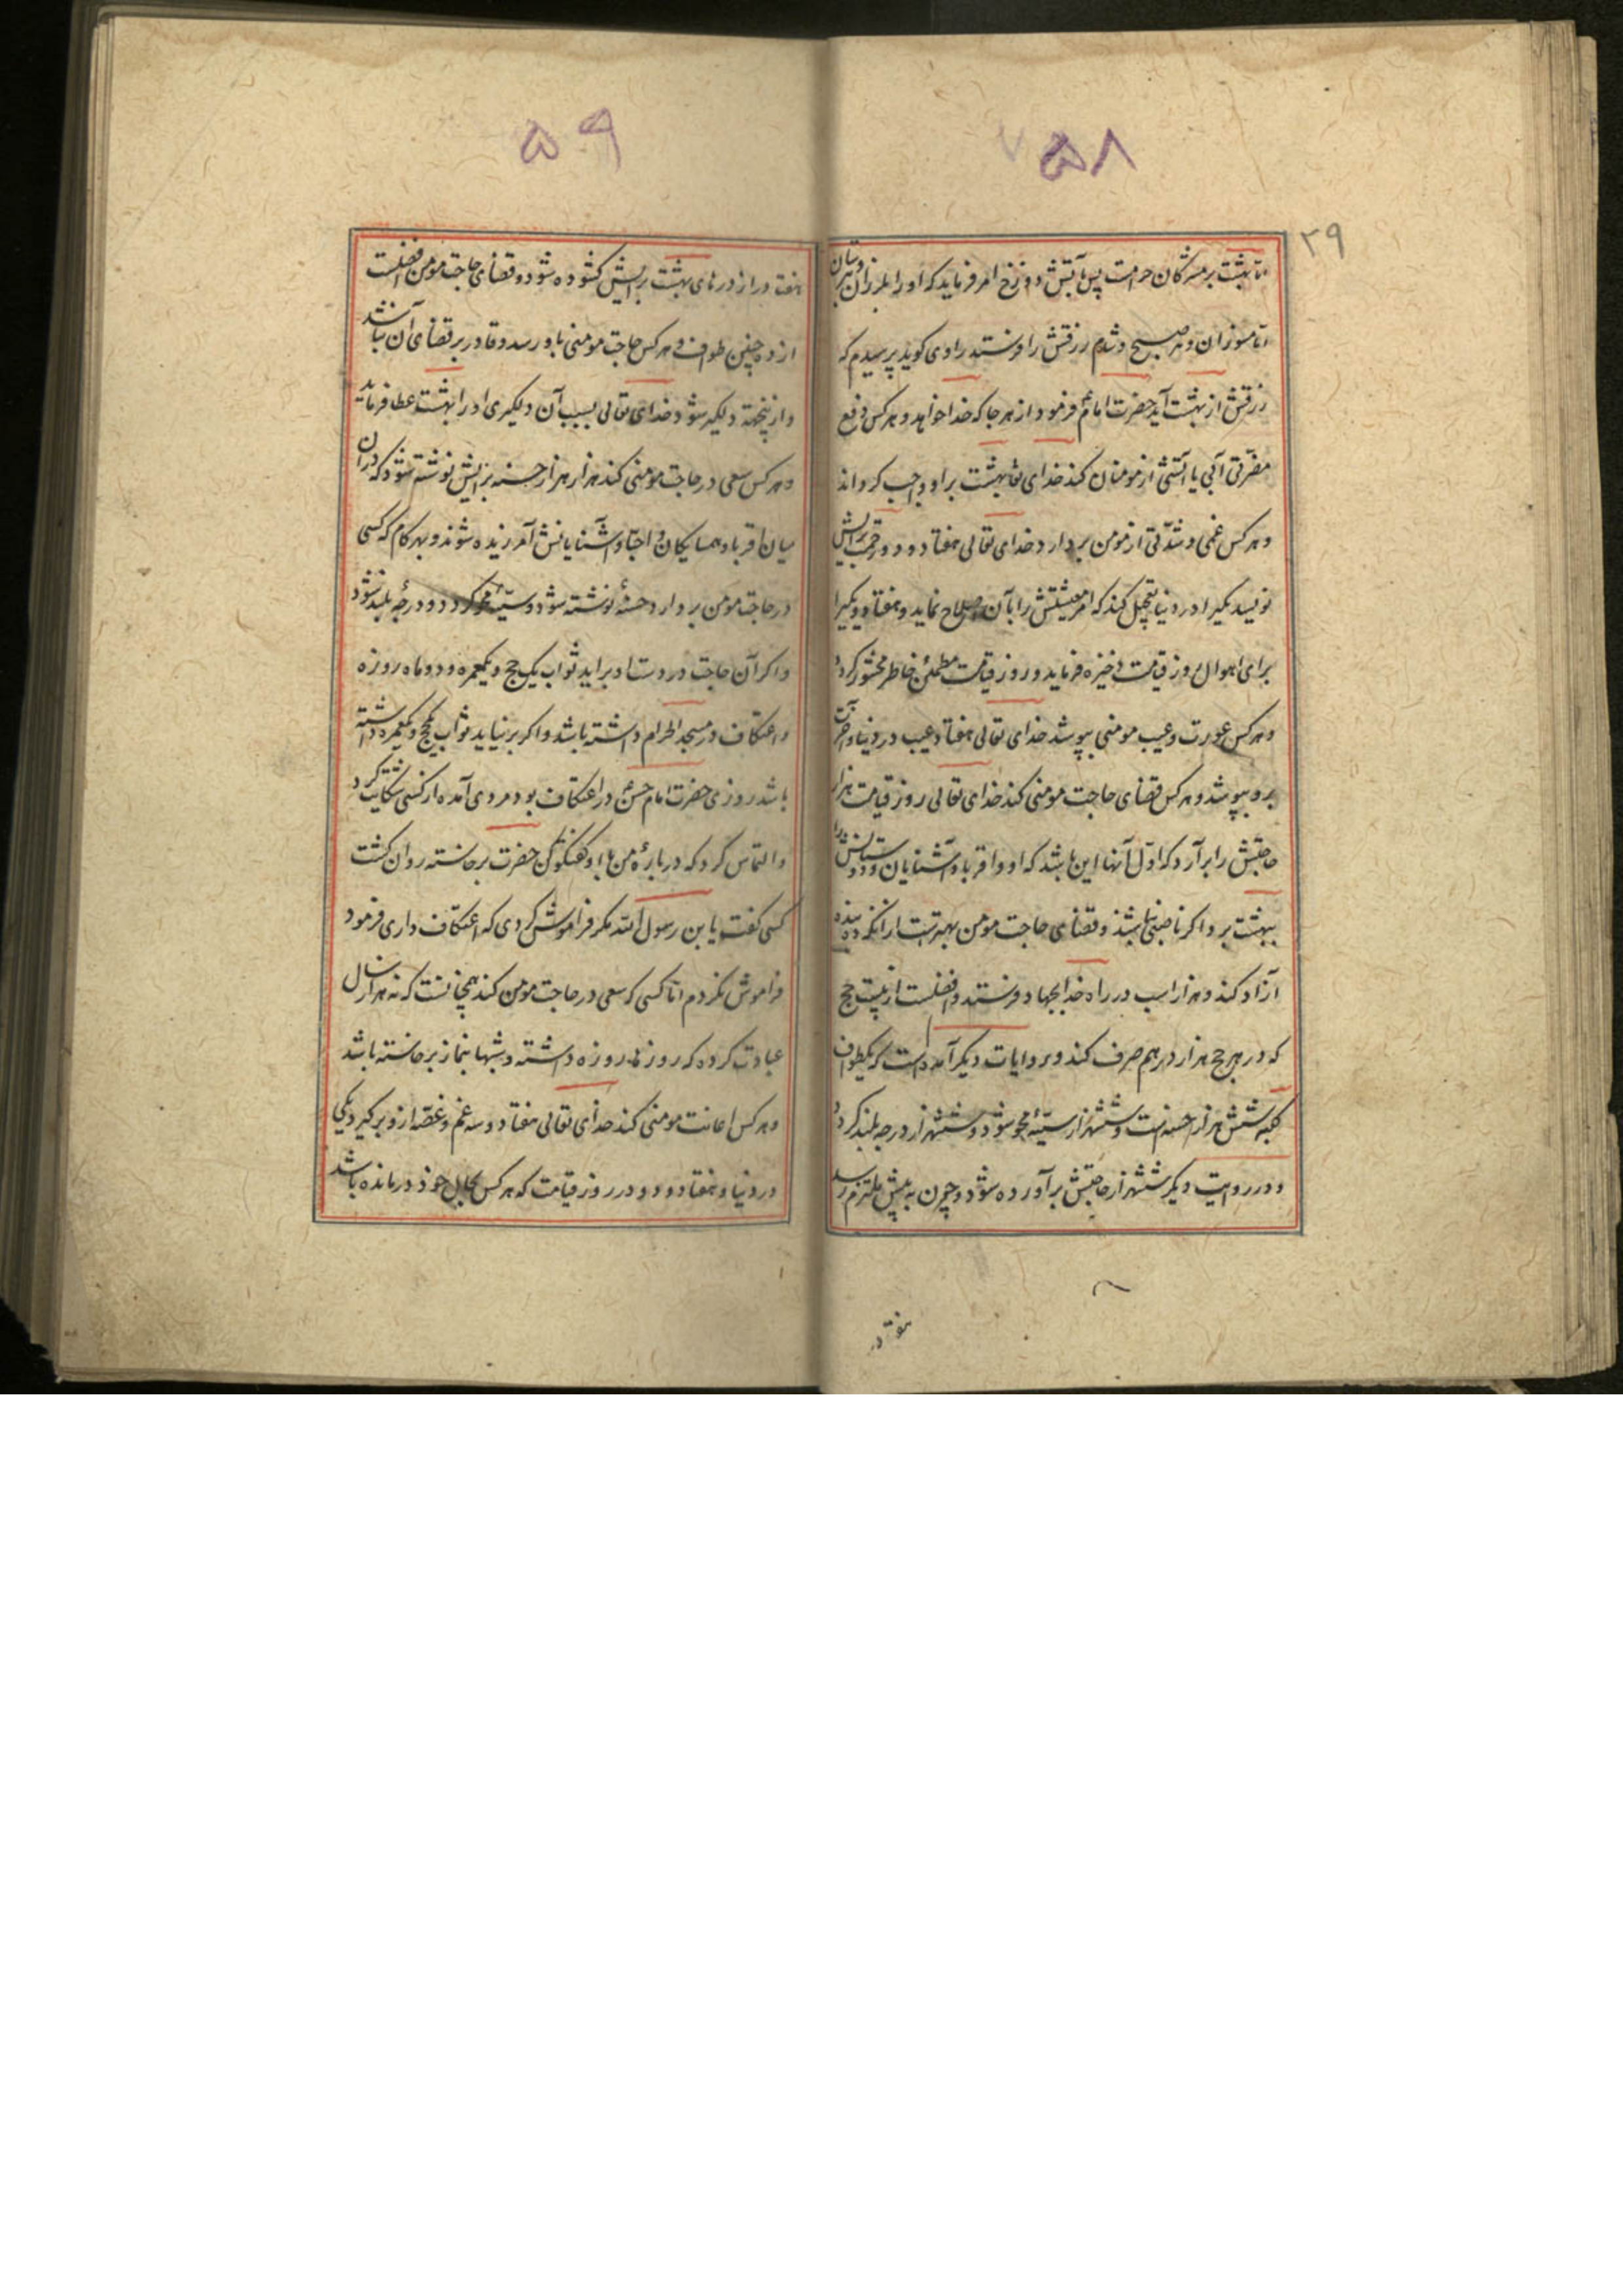 ۵۸
۲۹
اما بهشت بر مشرکان حرامست پس بآتش دوزخ امر فرماید که او را بلرزان و بترسان
اما مسوزان و هر صبح و شام رزقش را فرستند راوی کوید پرسیدم که
رزقش از بهشت آید حضرت امام فرمود از هر جا که خدا خواهد و هر کس دفع
مضرّتی آبی یا آتشی از مومنان کند خدای تعا بهشت بر او واجب کرداند
و هر کس غمی و شدّتی از مومن بردارد خدای تعالی هفتاد و دو رحمت برایش
نویسد یکیرا در دنیا تعجیل کند که امر معیشتش را بآن اصلاح نماید و هفتاد و یکیرا
برای اهوال روز قیامت ذخیره فرماید و روز قیامت مطمئن خاطر محشور کردد
و هر کس عورت و عیب مومنی بپوشد خدای تعالی هفتاد عیب در دنیا و آخرت
برو بپوشد و هر کس قضای حاجت مومنی کند خدای تعالی روز قیامت هزار
حاجتش را برآرد که اوّل آنها این باشد که او و اقربا و آشنایان و دوستانش را
ببهشت برد اکر ناصبی نباشند و قضای حاجت مومن بهترست از آنکه ده بنده
آزاد کند و هزار اسب در راه خدا بجهاد فرستد و افضلست از بیست حج
که در هر حج هزار درهم صرف کند و بروایات دیکر آمده است که یکطواف
کعبه شش هزار حسنه است و ششهزار سیّئه محو شود و ششهزار درجه بلند کردد
و در روایت دیکر ششهزار حاجتش برآورده شود و چون به پیش ملتزم رسد
هفت در
۵۹
هفت در از درهای بهشت برایش کشوده شود و قضای حاجت مومن افضلست
از ده چنین طواف و هر کس حاجت مومنی باو رسد و قادر بر قضای آن نباشد
و از ینجهة دلکیر شود خدای تعالی بسبب آن دلکیری او را بهشت عطا فرماید
و هر کس سعی در حاجت مومنی کند هزار هزار حسنه برایش نوشته شود که در آن
میان اقربا و همسایکان و احبّا و آشنایانش آمرزیده شوند و بهر کام که کسی
در حاجت مومن بردارد حسنهٔ نوشته شود و سیّئهٔ محو کردد و درجه بلند شود
و اکر آن حاجت در دست او برآید ثواب یک حج و یکعمره و دو ماه روزه
و اعتکاف در مسجد الحرام داشته باشد و اکر برنیاید ثواب یکحج و یکعمره داشته
باشد روزی حضرت امام حسن در اعتکاف بود مردی آمده از کسی شکایت کرد
و التماس کرد که در بارهٔ من با او کفتکو کن حضرت برخاسته روان کشت
کسی کفت یابن رسول الله مکر فراموش کردی که اعتکاف داری فرمود
فراموش نکردم امّا کسی که سعی در حاجت مومن کند همچنانست که نه هزار سال
عبادت کرده که روزها روزه داشته و شبها بنماز برخاسته باشد
و هر کس اعانت مومنی کند خدای تعالی هفتاد و سه غم و غصّه ازو برکیرد یکی
در دنیا و هفتاد و دو در روز قیامت که هر کس بحال خود درمانده باشد